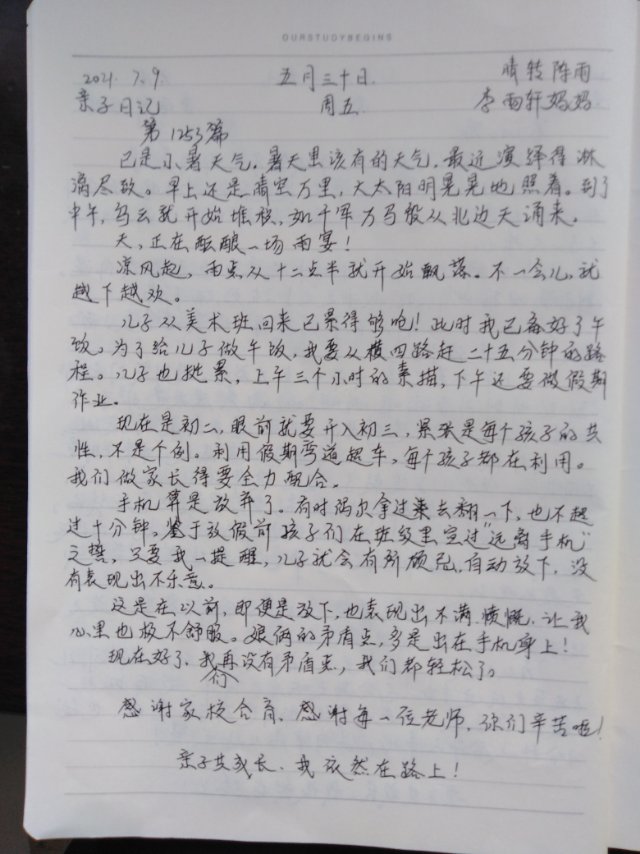 OURSTUDYBEGINS
2021.7.9 五月三十日 晴转阵雨
亲子日记 周五 李雨轩妈妈
第1253篇
已是小暑天气。暑天里该有的天气,最近演绎得淋
漓尽致。早上还是晴空万里,大太阳明晃晃地照着。到了
中午,乌云就开始堆积,如千军万马般从北边天涌来。
天,正在酝酿一场雨宴!
凉风起,雨点从十二点半就开始飘落。不一会儿,就
越下越欢。
儿子从美术班回来已累得够呛!此时我已备好了午
饭。为了给儿子做午饭,我要从横四路赶二十五分钟的路
程。儿子也挺累,上午三个小时的素描,下午还要做假期
作业。
现在是初二,眼前就要升入初三,紧张是每个孩子的共
性,不是个例。利用假期弯道超车,每个孩子都在利用。
我们做家长得要全力配合。
手机算是放弃了。有时偶尔拿过来去翻一下,也不超
过十分钟。鉴于放假前孩子们在班级里宣过“远离手机”
之誓,只要我一提醒,儿子就会有所顾忌,自动放下,没
有表现出不乐意。
这是在以前,即便是放下,也表现出不满愤慨,让我
心里也极不舒服。娘俩的矛盾点,多是出在手机身上!
现在好了,我们再没有矛盾点,我们都轻松了。
感谢家校合育,感谢每一位老师,你们辛苦啦!
亲子共成长,我依然在路上!